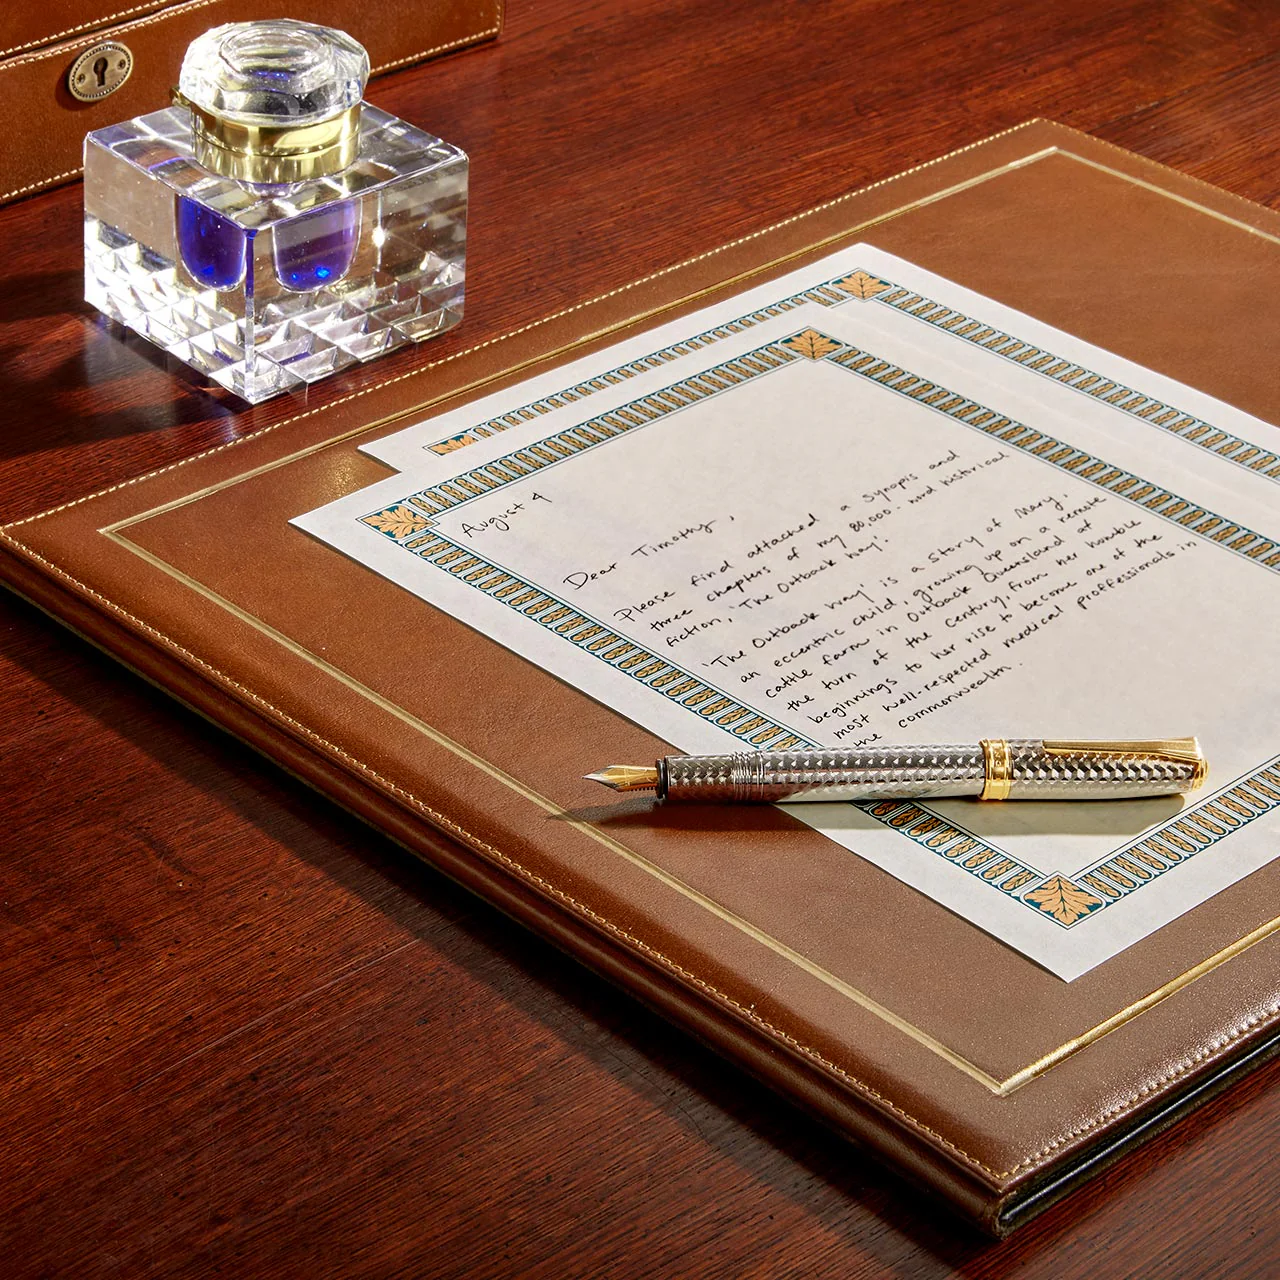 August 4
Dear Timothy,
Please find attached a synopis and
three chapters of my 80,000-word historical
fiction, 'The Outback Way'.
'The Outback Way' is a story of Mary,
an eccentric child, growing up on a remote
cattle farm in Outback Queensland at
the turn of the century, from her humble
beginnings to her rise to become one of the
most well-respected medical proffesionals in
the commonwealth.